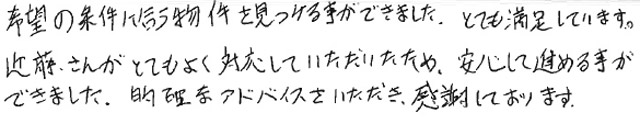 希望の条件に合う物件を見つける事ができました。とても満足しています。
近藤さんがとてもよく対応していただいたため、安心して進める事が
できました。的確なアドバイスをいただき、感謝しております。